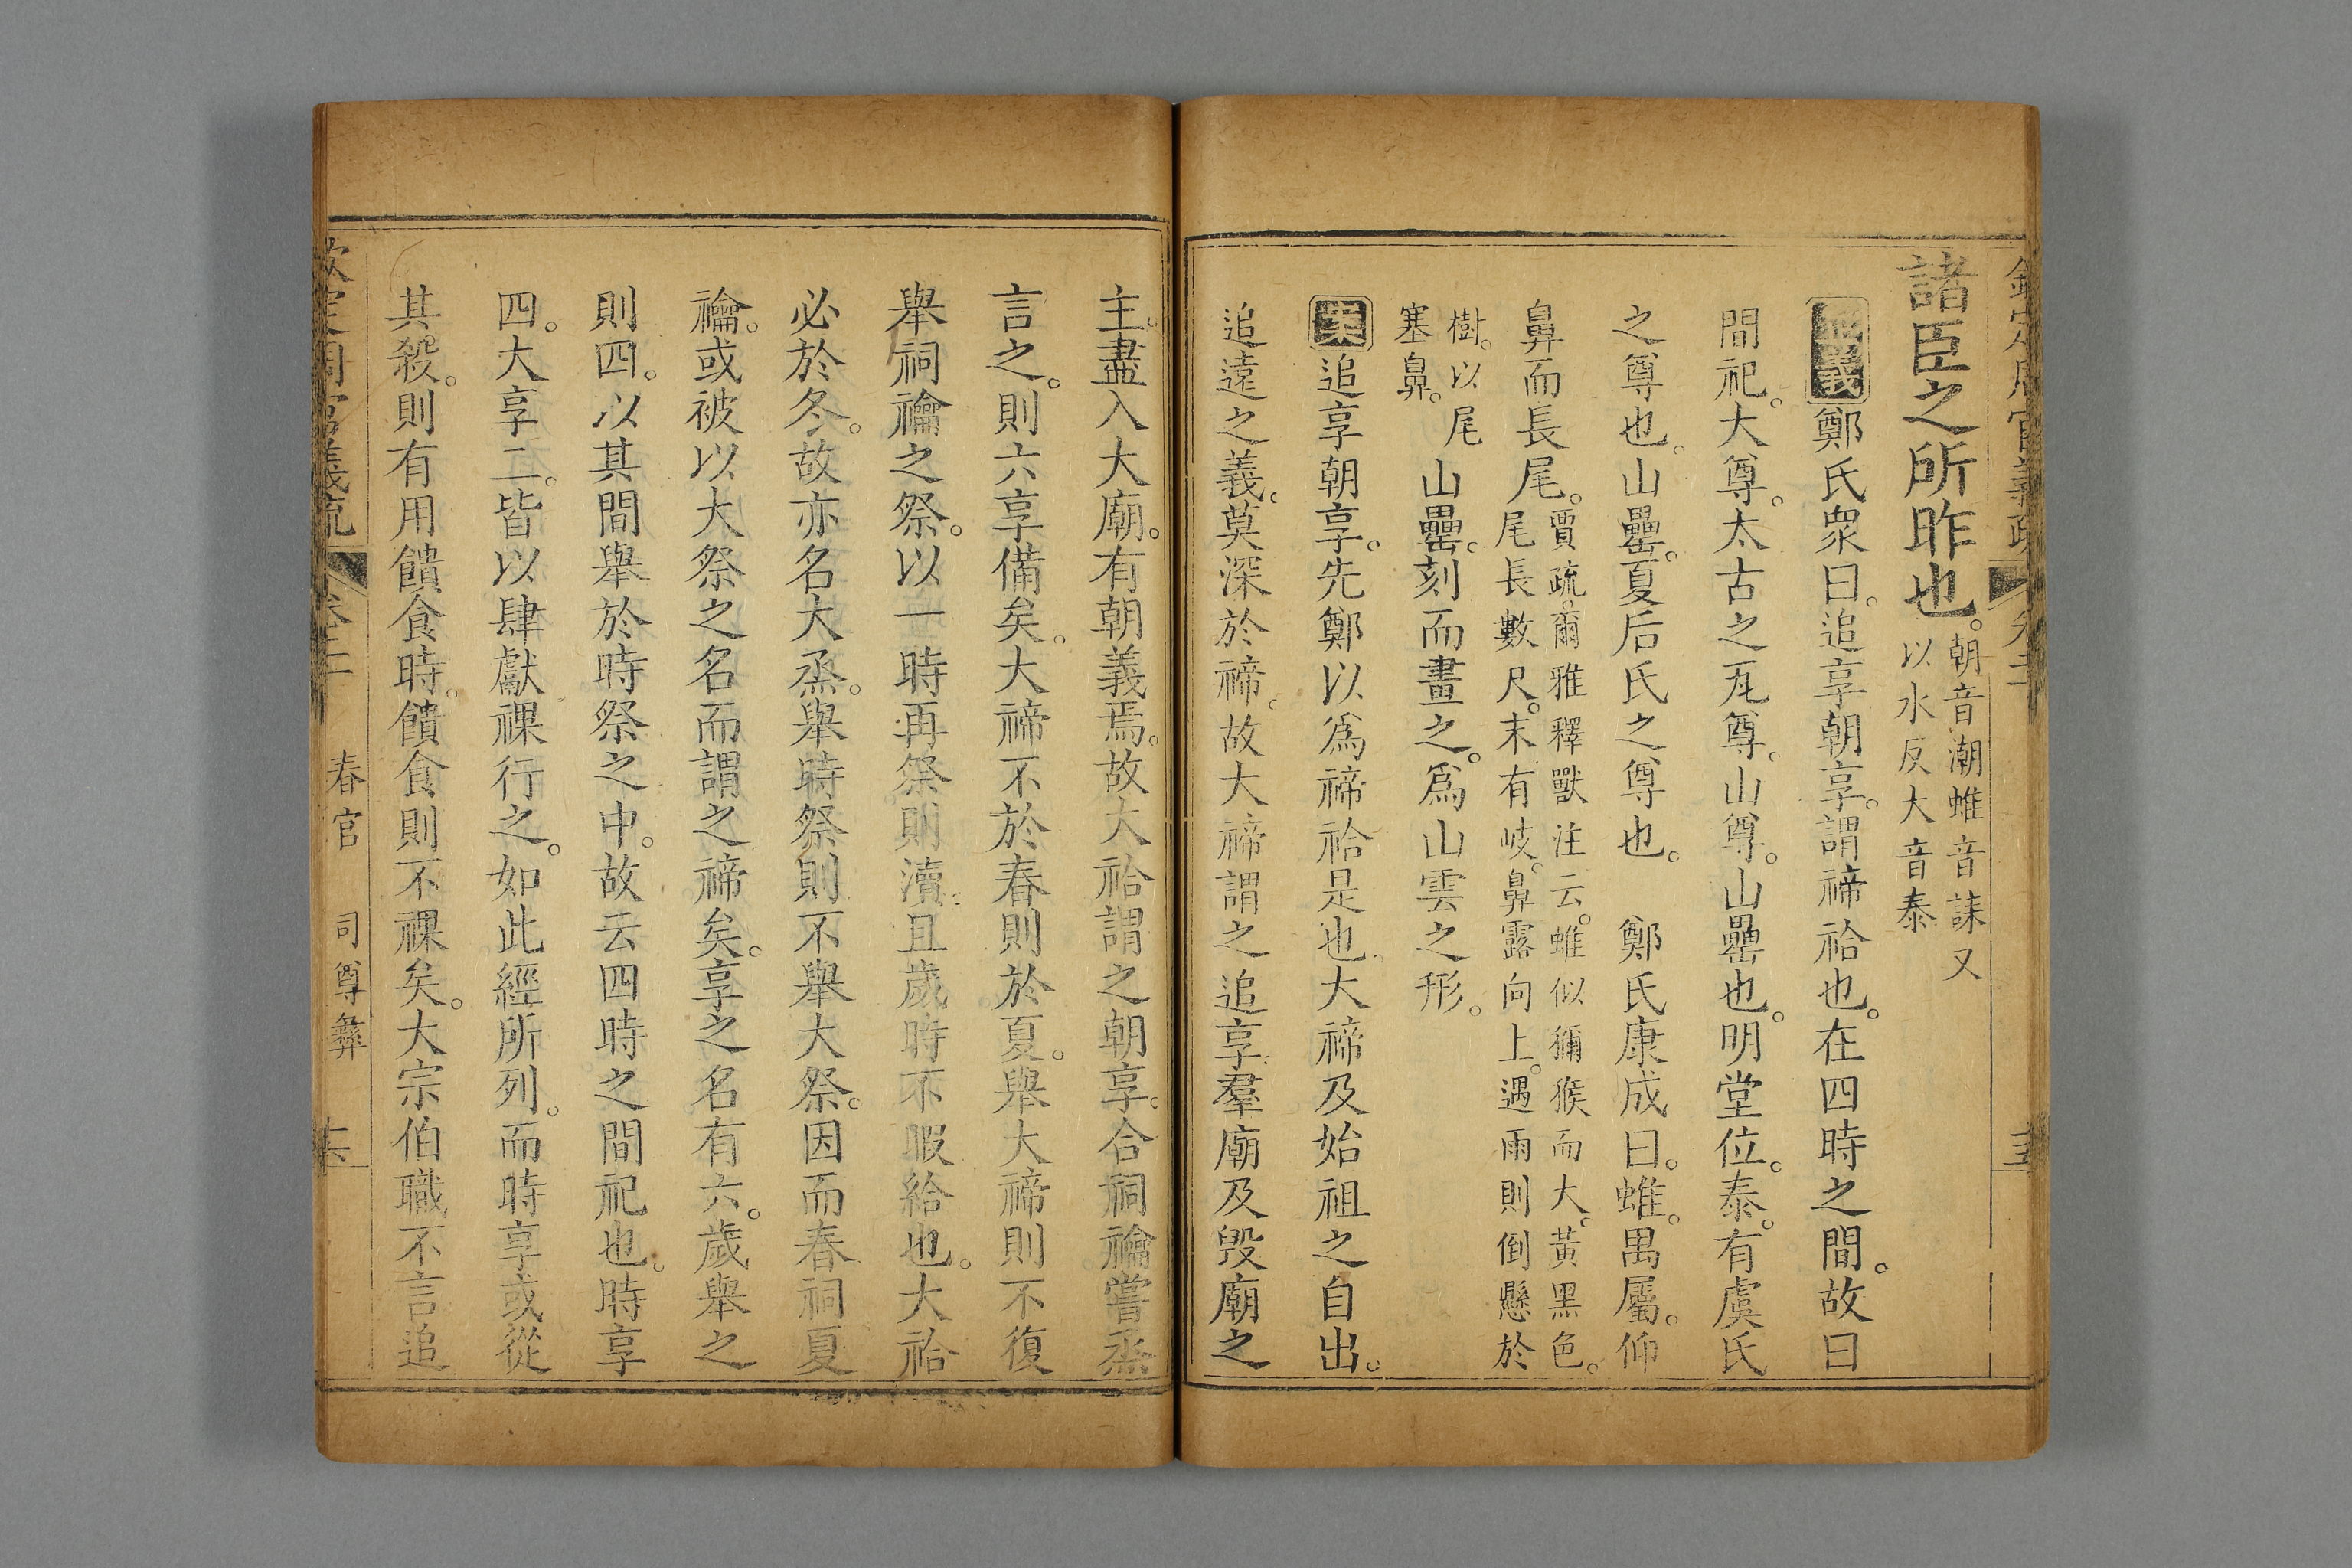 諸臣之所昨也。朝音潮蜼音誄又
以水反大音泰
義鄭氏衆曰。追享朝享。謂禘祫也。在四時之間。故曰
間祀。大尊。太古之瓦尊。山尊。山罍也。明堂位。泰。有虞氏
之尊也。山罍。夏后氏之尊也。 鄭氏康成曰。蜼。禺屬。仰
鼻而長尾。賈疏。爾雅釋獸注云。蜼似獼猴而大。黃黑色。
尾長數尺。末有岐。鼻露向上。遇雨則倒懸於
樹。以尾
塞鼻。
山罍。刻而畫之。爲山雲之形。
案追享朝享。先鄭以爲禘祫是也。大禘及始祖之自出。
追遠之義。莫深於禘。故大禘謂之追享。羣廟及毀廟之
主。盡入大廟。有朝義焉。故大祫謂之朝享。合祠禴嘗烝
言之。則六享備矣。大禘不於春則於夏。舉大禘則不復
舉祠禴之祭。以一時再祭則瀆。且歲時不暇給也。大祫
必於冬。故亦名大烝。舉時祭則不舉大祭。因而春祠夏
禴。或被以大祭之名而謂之禘矣。享之名有六。歲舉之
則四。以其間舉於時祭之中。故云四時之間祀也。時享
四。大享二。皆以肆獻祼行之。如此經所列。而時享或從
其殺。則有用饋食時。饋食則不祼矣。大宗伯職不言追
欽定周官義疏 卷二 春官 司尊彝